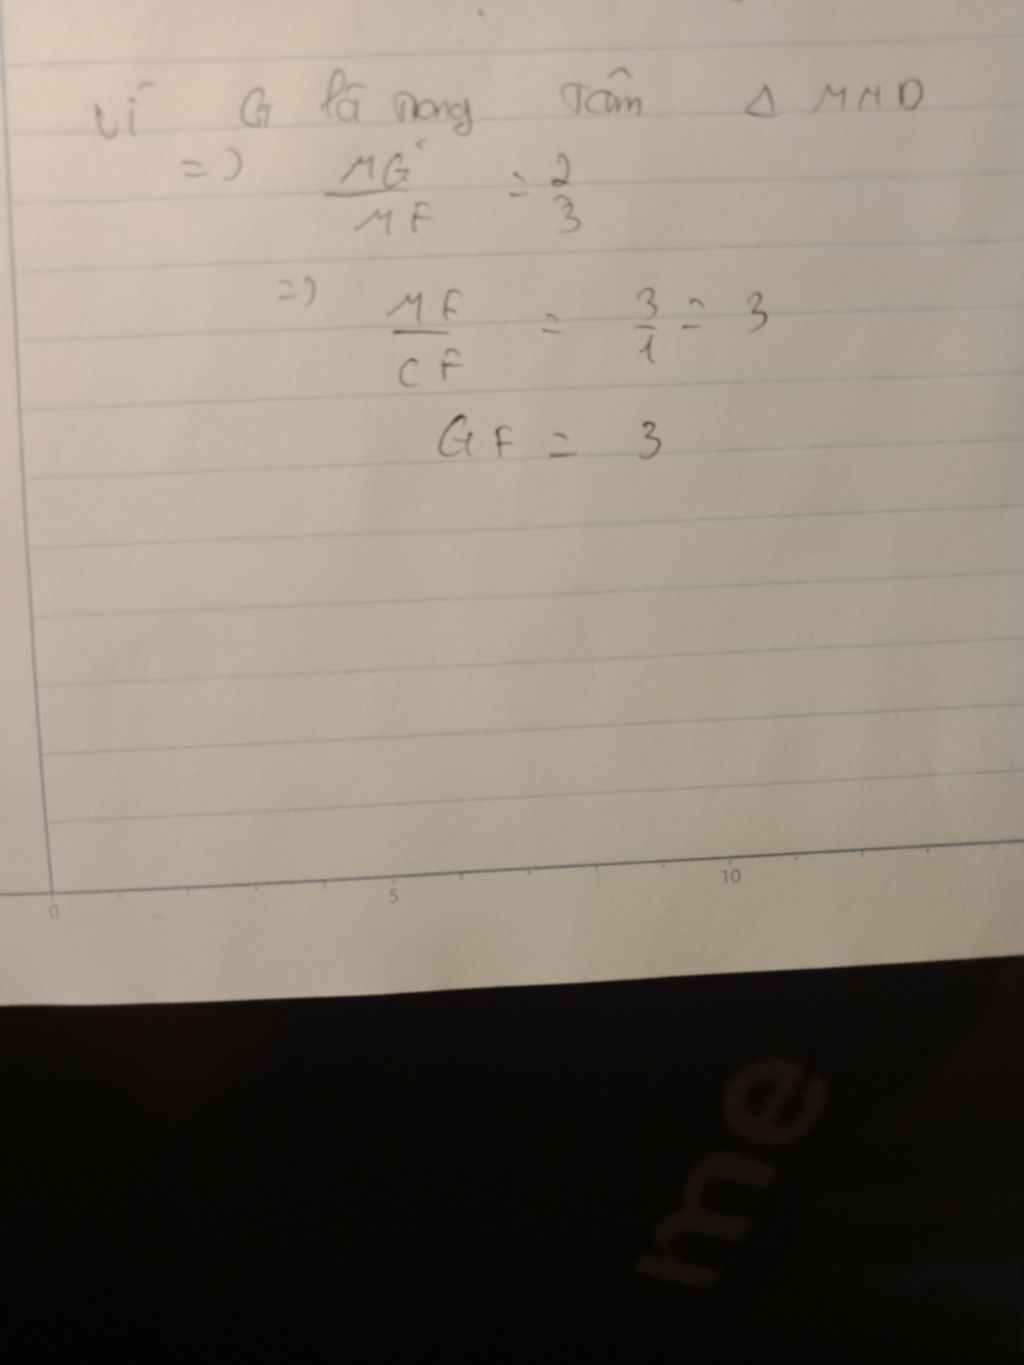 Vì G là trọng tâm Δ MND
=> MG / MF = 2 / 3
=> MF / GF = 3 / 1 = 3
GF = 3
0 5 10
me